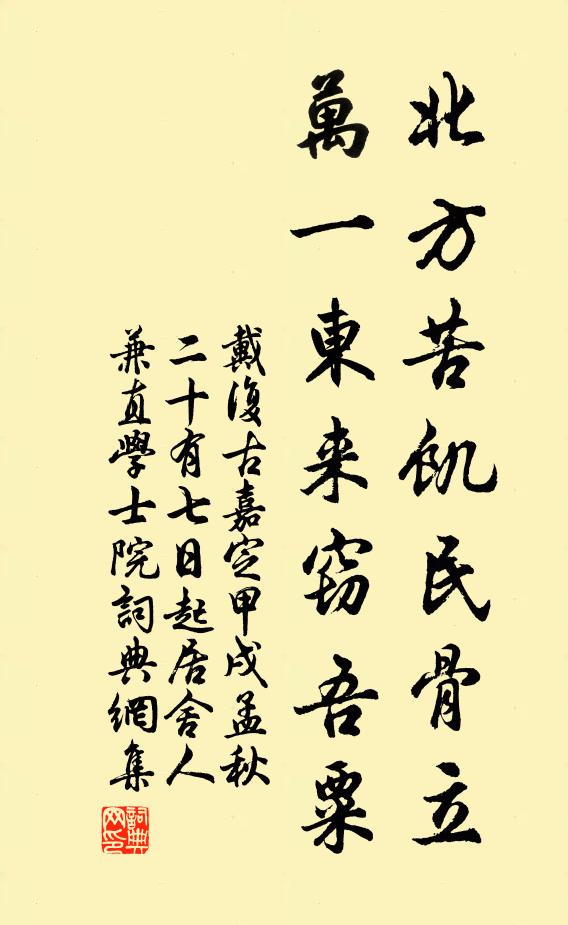 北方苦飢民骨立
萬一東来窃吾粟
戴復古嘉定甲戌孟秋
二十有七日起居舍人
兼直學士院詞典網集
詞典网印